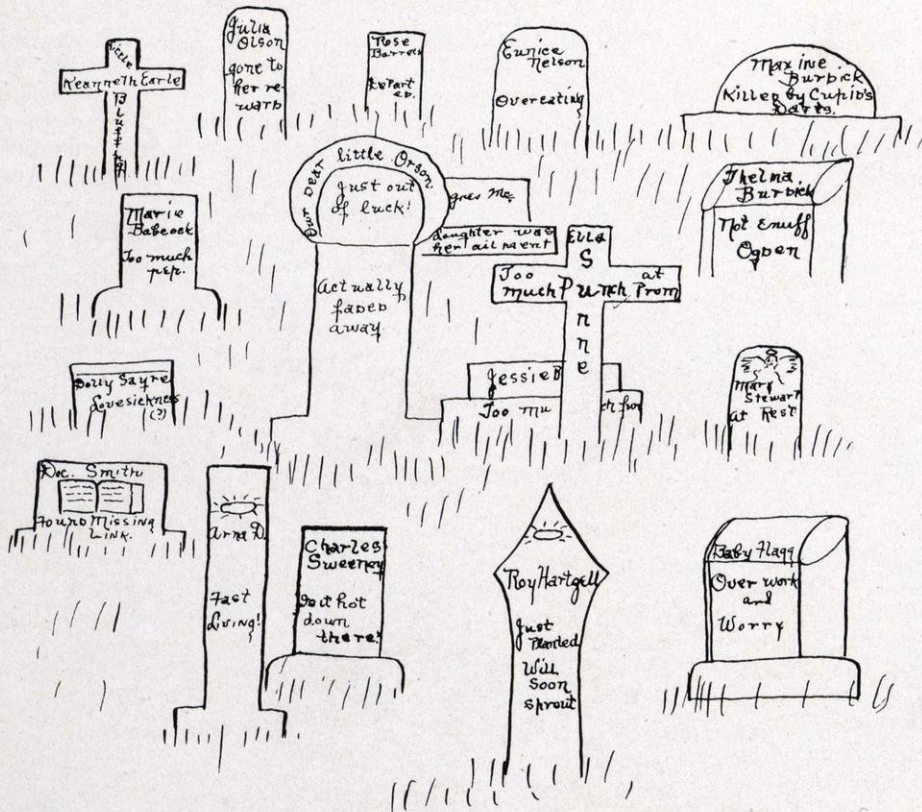 Little
Keanneth Earle
Bluffing
Julia
Olson
gone to
her re-
ward
Rose
Barrett
Depart
ed.
Eunice
Nelson
Overeating
Maxine
Burdick
Killed by Cupid's
Darts.
Marie
Babcock
Too much
pep.
Our Dear little Orson
Just out
of luck!
Actually
faded
away.
gnes Mc
daughter was
her ailment
Ella
Sunne
Too much Punch at Prom
Thelma
Burdick
Not Enuff
Ogden
Dolly Sayre
Lovesickness
(?)
Jessie B
Too mu ch fun
Mary
Stewart
At Rest
Doc. Smith
Found Missing
Link.
Arna D.
Fast
Living!
Charles
Sweeney
Is it hot
down
there?
Roy Hartgell
Just
Planted
Will
Soon
Sprout
Baby Flagg
Over work
and
Worry